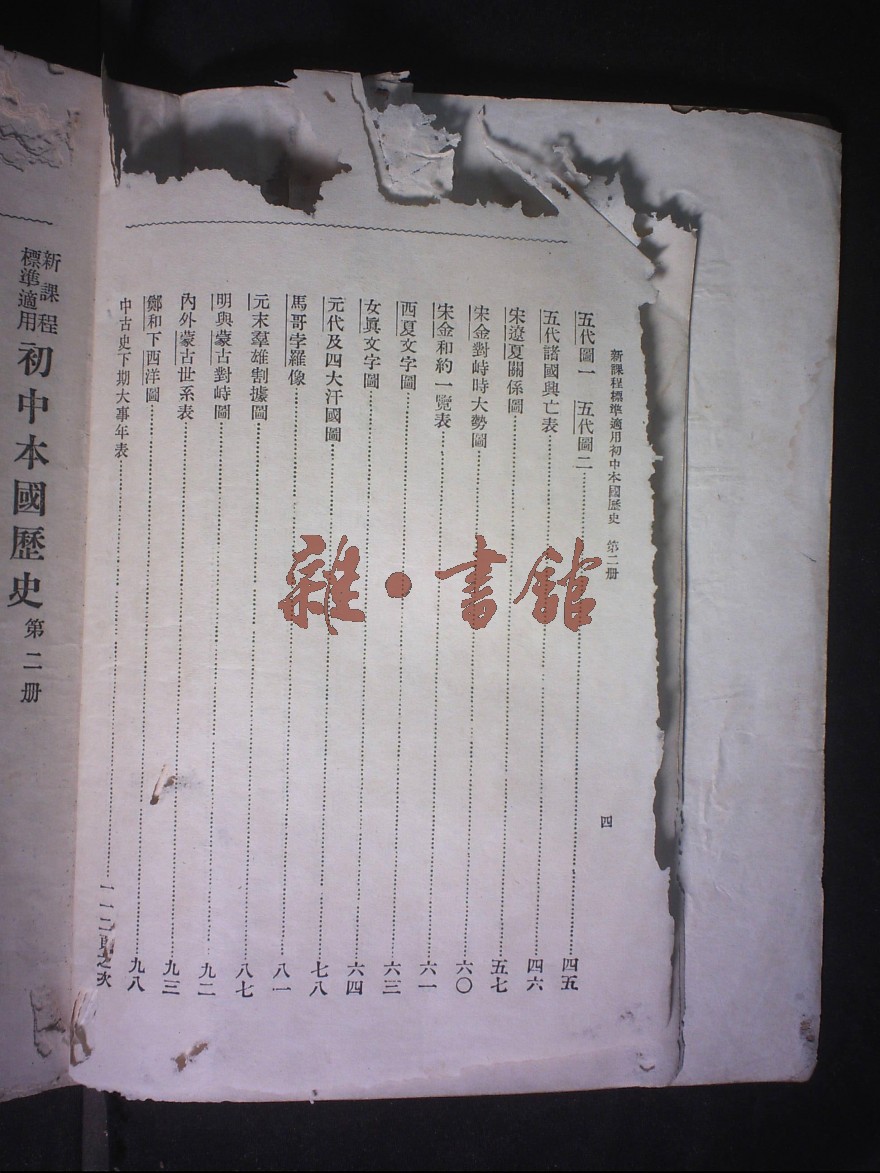 新課程標準適用初中本國歷史　第二册
四
五代圖一　五代圖二……四五
五代諸國興亡表……四六
宋遼夏關係圖……五七
宋金對峙時大勢圖……六〇
宋金和約一覽表……六一
西夏文字圖……六三
女眞文字圖……六四
元代及四大汗國圖……七八
馬哥孛羅像……八一
元末羣雄割據圖……八七
明與蒙古對峙圖……九二
內外蒙古世系表……九三
鄭和下西洋圖……九八
中古史下期大事年表……一一二頁之次
新課程標準適用初中本國歷史第二册
雜·書館